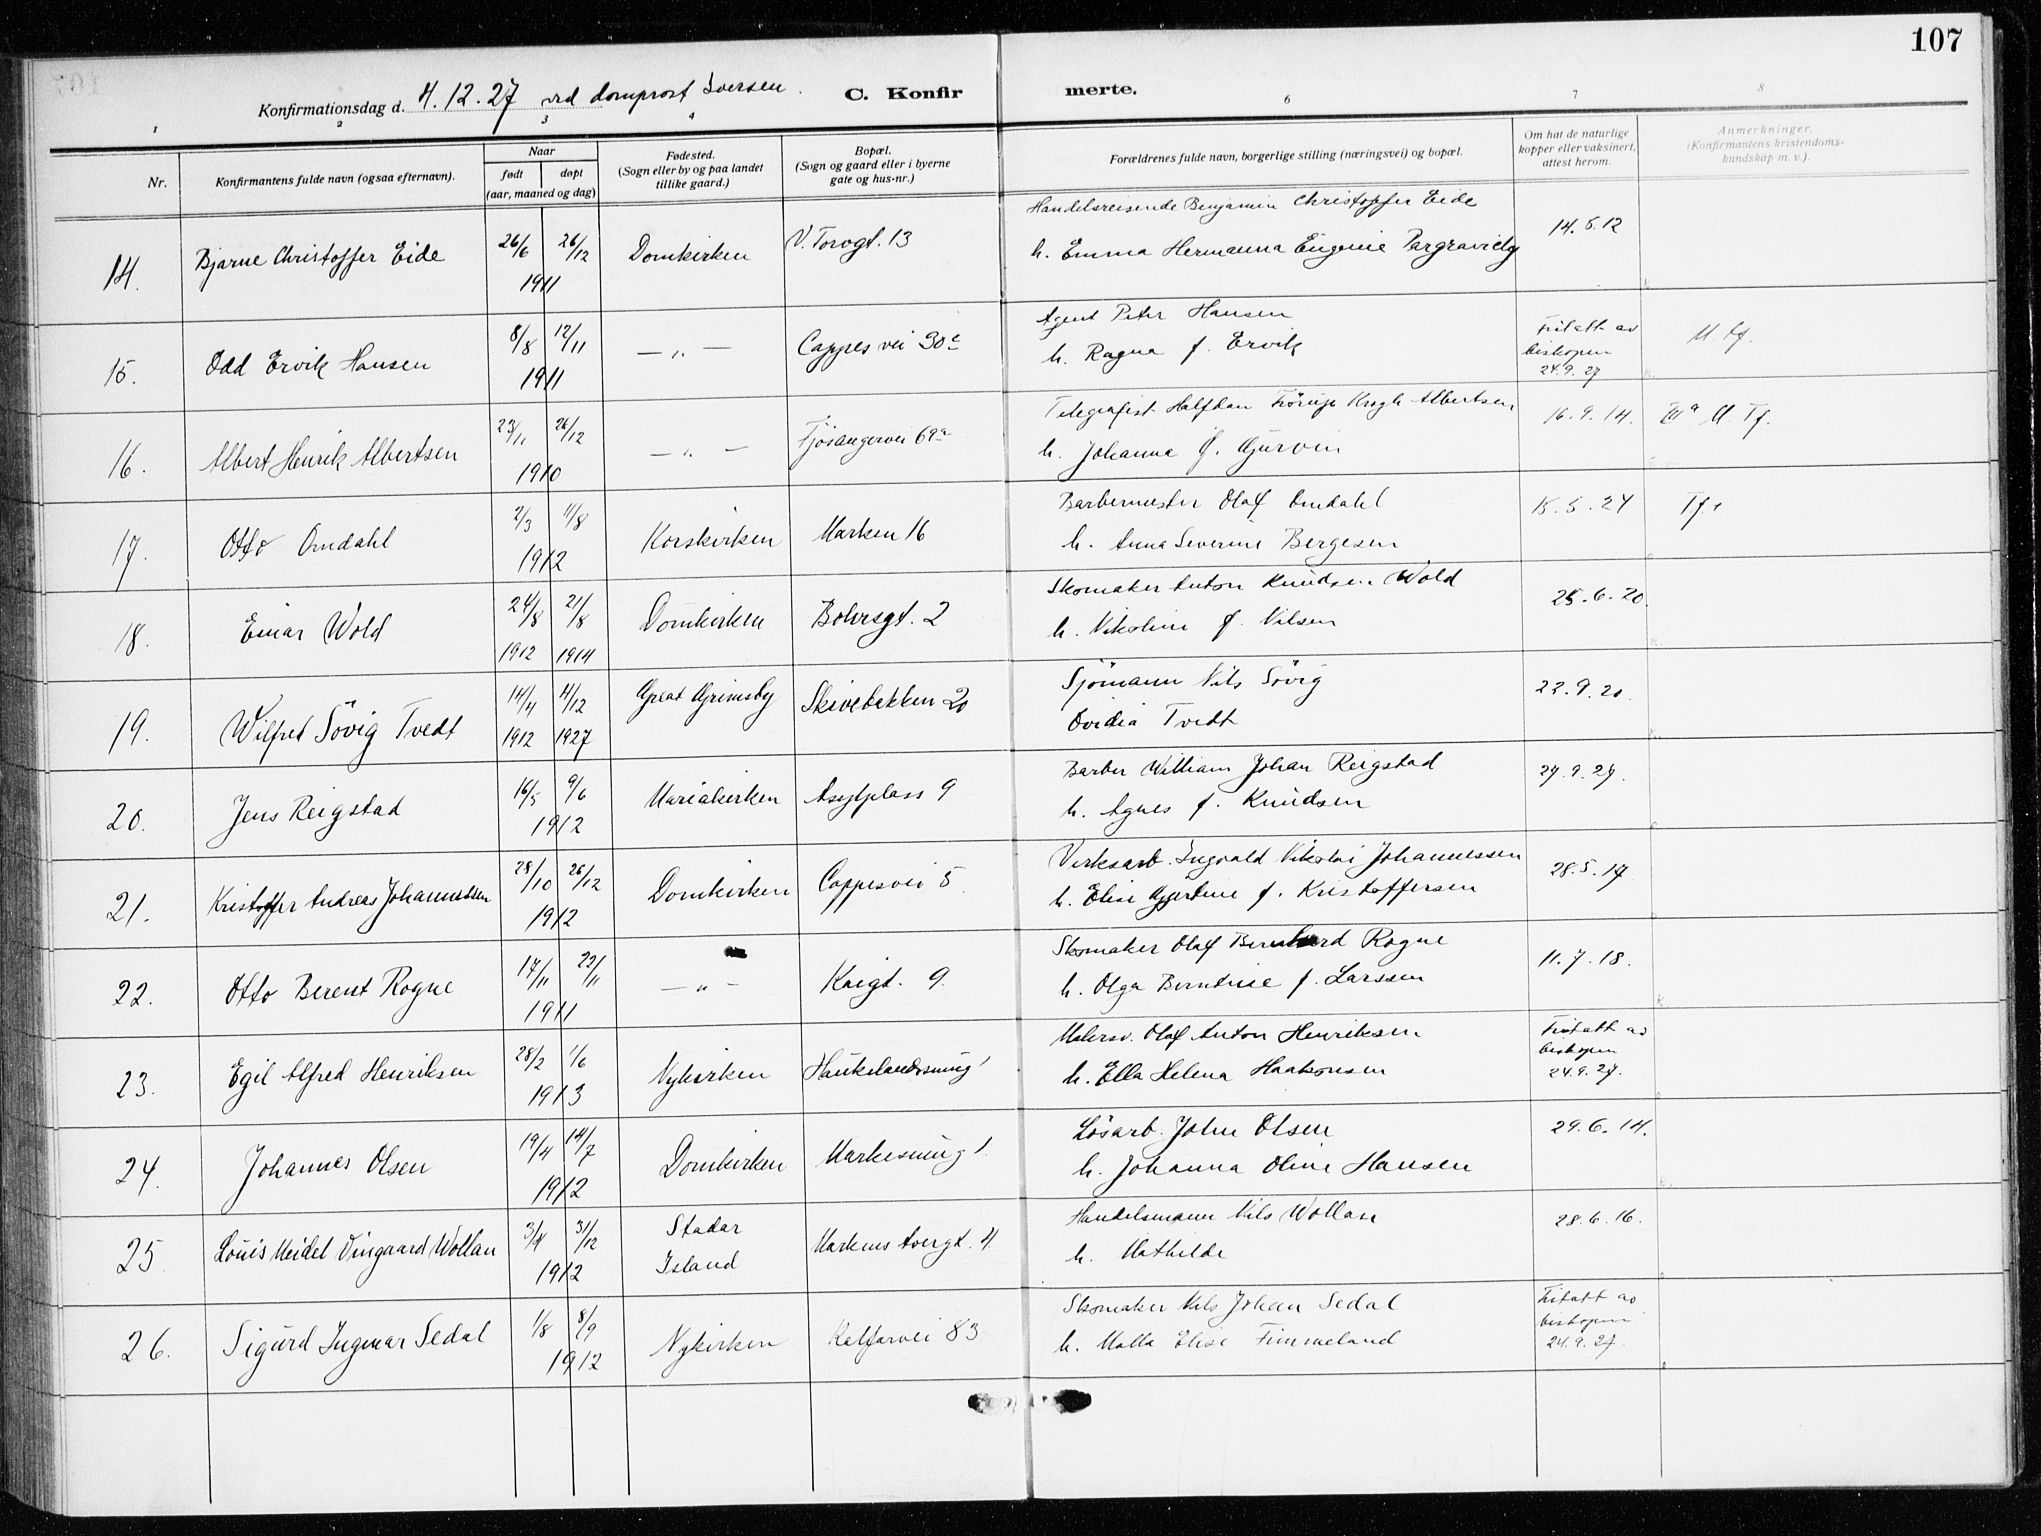 107
Konfirmationsdag d. 4.12.27 ved domprost Iversen. C. Konfir merte.
1 2 3 4 6 7 8
Nr. Konfirmantens fulde navn (ogsaa efternavn). Naar født døpt (aar, maaned og dag) Fødested. (Sogn eller by og paa landet tillike gaard.) Bopæl. (Sogn og gaard eller i byerne gate og hus-nr.) Forældrenes fulde navn, borgerlige stilling (næringsvei) og bopæl. Om hat de naturlige kopper eller vaksinert, attest herom. Anmerkninger. (Konfirmantens kristendoms-kundskap m. v.).
Handelsreisende Benjamin Christoffer Eide
14. Bjarne Christoffer Eide 26/6 26/12 1911 Domkirken V. Torvgt. 13 h. Emma Hermanna Eugenie 14.6.12
Agent Peter Hansen
15. Odd Ervik Hansen 8/8 12/11 1911 — „ — Cappes vei 30c h. Ragna f. Ervik Fritatt av biskopen 24.9.27 M. Tf.
Telegrafist Halfdan Krogh Albertsen
16. Albert Henrik Albertsen 23/11 26/12 1910 — „ — Fjösangervei 69a h. Johanna f. Gjurvin 16.9.14. M. Tf.
Barbermester Olaf Omdahl
17. Otto Omdahl 2/3 11/8 1912 Korskirken Marken 16 h. Anna Severine Bergesen 15.5.24 Tf.
Skomaker Anton Knudsen Wold
18. Einar Wold 24/8 21/8 1912 1914 Domkirken Bohrsgt. 2 h. Nikoline f. Nilsen 25.6.20.
Sjömann Nils Sövig
19. Wilfred Sövig Tvedt 14/4 4/12 1912 1927 Great Grimsby Skivebakken 20 Ovidia Tvedt 22.9.20.
Barber William Johan Reigstad
20. Jens Reigstad 16/5 9/6 1912 Mariakirken Asylplass 9 h. Agnes f. Knudsen 27.9.27.
Verksarb. Ingvald Nikolai Johannessen
21. Kristoffer Andreas Johannessen 28/10 26/12 1912 Domkirken Cappesvei 5 h. Elise Gjertine f. Kristoffersen 28.5.17
Skomaker Olaf Bernhard Rogne
22. Otto Berent Rogne 17/11 23/11 1911 — „ — Kaigt. 9. h. Olga Berntine f. Larssen 11.7.18.
Malersv. Olaf Anton Henriksen
23. Egil Alfred Henriksen 28/2 1/6 1913 Nykirken Haukelandssmug 1 h. Ella Helena Haakonsen Fritatt av biskopen 24.9.27.
Lösarb. John Olsen
24. Johannes Olsen 19/4 14/7 1912 Domkirken Markesmug 1. h. Johanna Oline Hansen 29.6.14.
Handelsmann Nils Wollan
25 Louis Meidel Vingaard Wollan 3/4 31/12 1912 Stadar Island Markens tvergt. 4. h. Mathilde 28.6.16.
Skomaker Nils Johan Sedal
26. Sigurd Ingmar Sedal 1/8 8/9 1912 Nykirken Kalfarvei 83 h. Malla Elise Fimmeland Fritatt av biskopen 24.9.27.